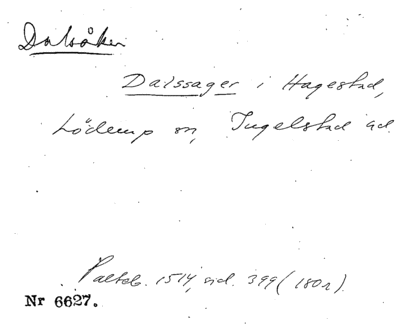 Dalsåker
Dalssager i Hagestad,
Löderup sn, Ingelstad hd.
Paltsb. 1514, sid. 399 (180r).
Nr 6627.